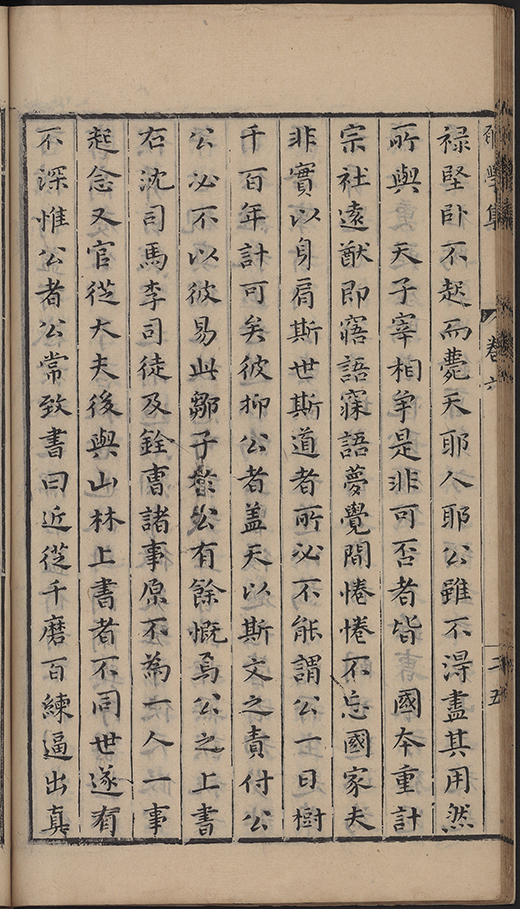 禄堅卧不起而薨天耶人耶公雖不淂盡其用然
所與　天子宰相爭是非可否者皆　國夲重計
宗社遠猷即寤語寐語夢覺間惓惓不忘國家夫
非實以身肩斯世斯道者所必不能謂公一日樹
千百年計可矣彼抑公者盖天以斯文之責付公
公必不以彼易此鄒子於公有餘慨焉公之上書
右沈司馬李司徒及銓曹諸事原不為一人一事
起念又官從大夫後與山林上書者不同世遂有
不深惟公者公常致書曰近從千磨百練逼出真
學集
卷六
二五